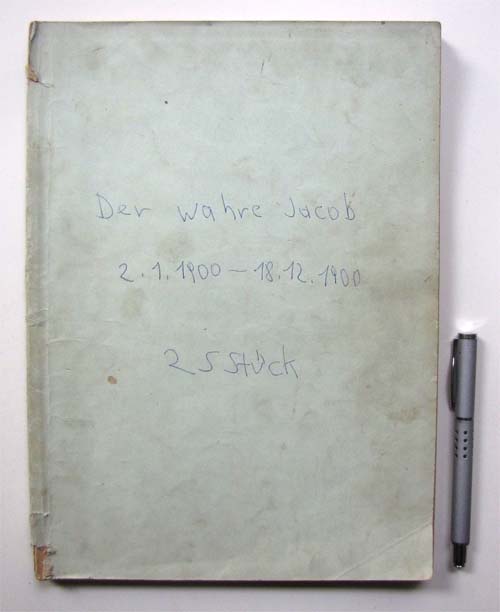 Der wahre Jacob
2.1.1900 – 18.12.1900
25 Stück